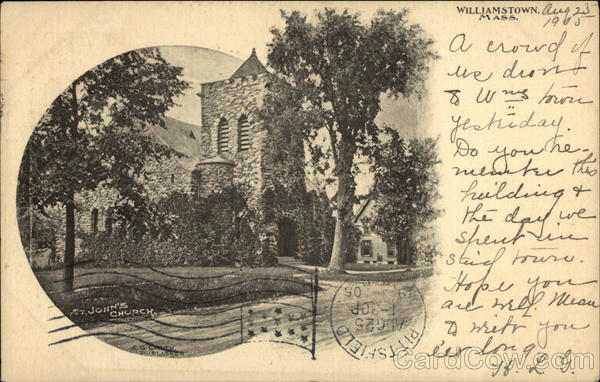 WILLIAMSTOWN,
MASS.
Aug 25
1905
A crowd of
us drove
to Wms town
yestiday.
Do you re-
member this
building &
the day we
spent in
said town.
Hope you
are well. Mean
to write you
e'er long.
H. L. G.
ST. JOHN'S
CHURCH.
PITTSFIELD
AUG 25
1-30P
05
CardCow.com